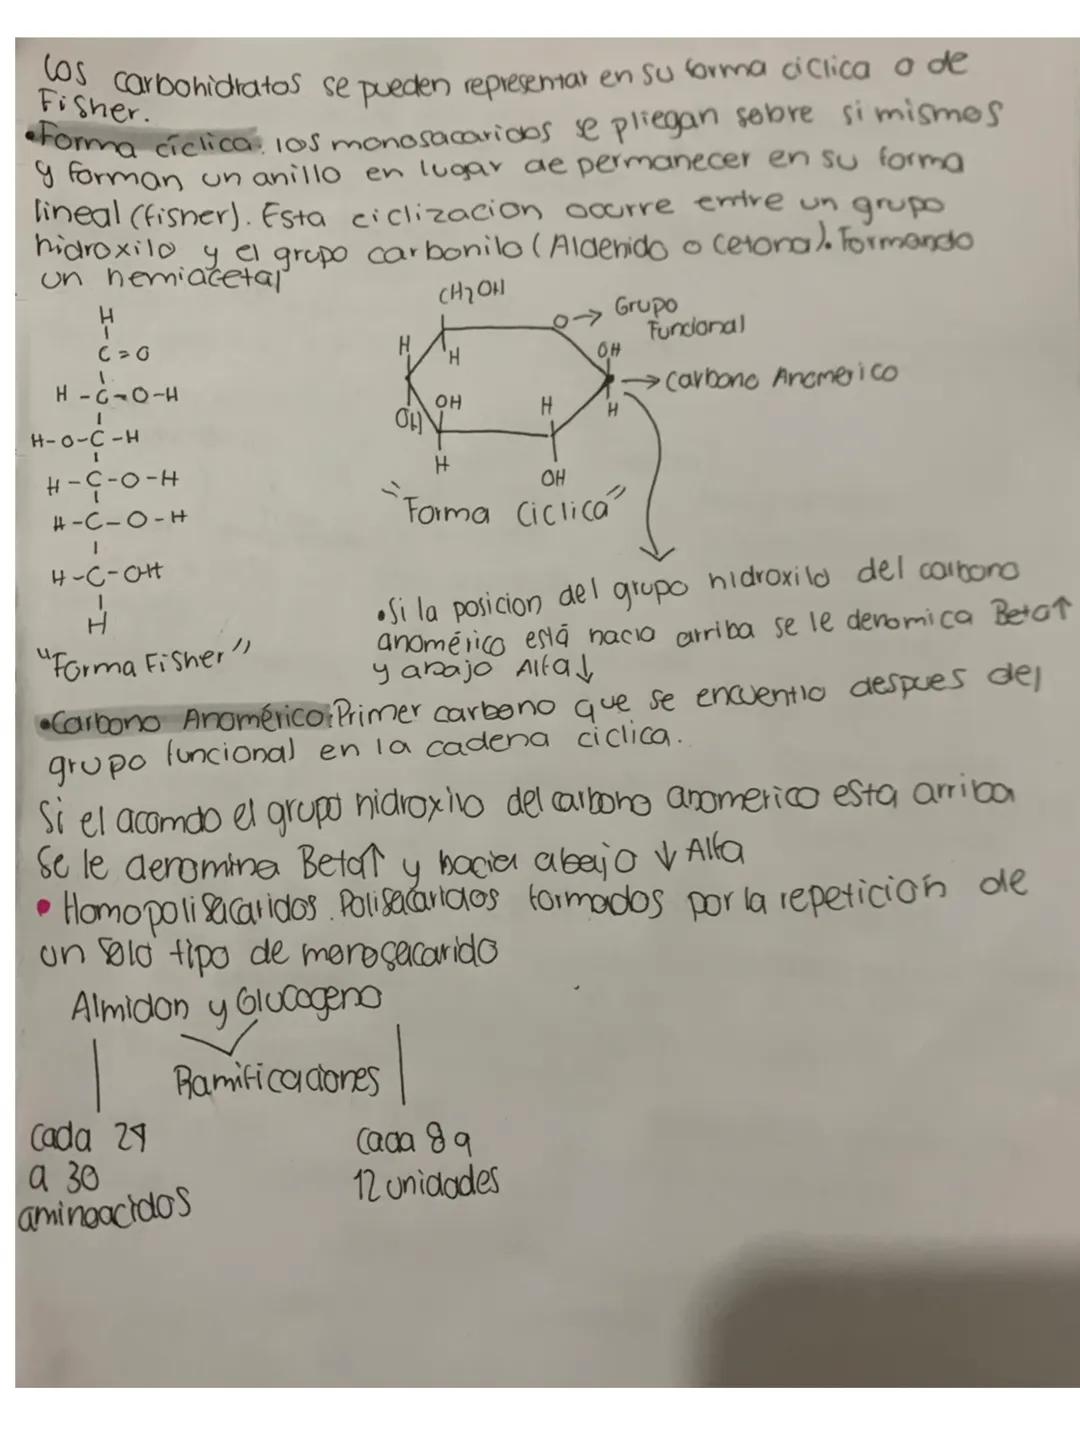 los carbohidratos se pueden representar en su forma ciclica o de
Fisher.
•Forma cíclica: los monosacaridos se pliegan sobre si mismos
y forman un anillo en lugar de permanecer en su forma
lineal (fisher). Esta ciclizacion ocurre entre un grupo
hidroxilo y el grupo carbonilo (Aldehido o cetona). Formando
un hemiacetal
H
C=O
H-C-O-H
H-O-C-H
H-C-O-H
H-C-O-H
H-C-OH
H
"Forma Fisher"
CH2OH
O→ Grupo
Funcional
H
H
OH
→Carbono Anomerico
OH
OH
H
H
H
OH
"Forma Ciclica"
•Si la posicion del grupo hidroxilo del carbono
anomérico está hacia arriba se le denomica Beta↑
y abajo Alfa↓
•Carbono Anomérico: Primer carbono que se encuentro despues del
grupo funcional en la cadena ciclica.
Si el acomdo el grupo hidroxilo del carbono anomerico esta arriba
Se le denomina Beta↑ y hacia abajo ↓ Alfa
• Homopolisacaridos. Polisacaridos formados por la repeticion de
un solo tipo de monosacarido
Almidon y Glucogeno
Ramificaciones
Cada 24
a 30
aminoacidos
Cada 8 a
12 unidades